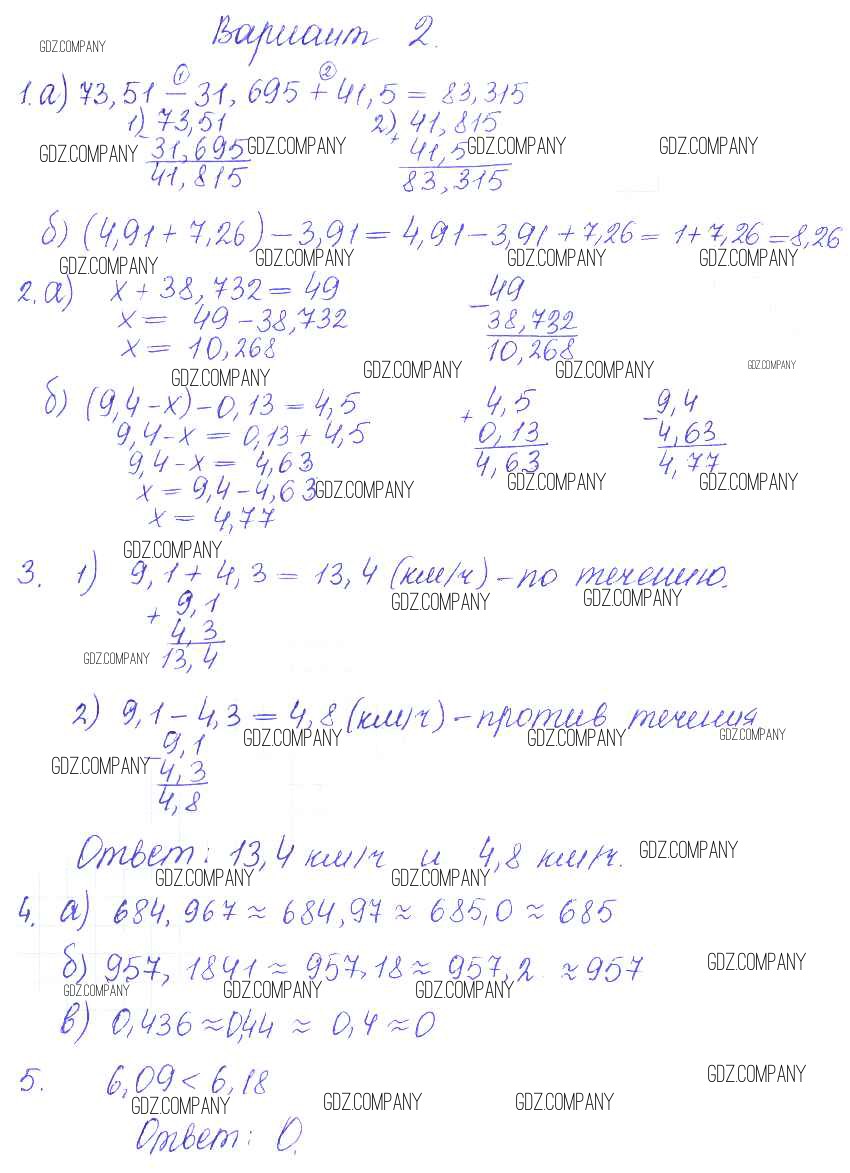 Вариант 2.
GDZ.COMPANY
1.а) 73,51 - 31,695 + 41,5 = 83,315
① ②
1) 73,51 2) 41,815
GDZ.COMPANY - 31,695 GDZ.COMPANY + 41,5 GDZ.COMPANY GDZ.COMPANY
41,815 83,315
б) (4,91 + 7,26) - 3,91 = 4,91 - 3,91 + 7,26 = 1 + 7,26 = 8,26
GDZ.COMPANY GDZ.COMPANY GDZ.COMPANY GDZ.COMPANY
2.а) x + 38,732 = 49 - 49
x = 49 - 38,732 38,732
x = 10,268 10,268
GDZ.COMPANY GDZ.COMPANY GDZ.COMPANY GDZ.COMPANY
б) (9,4 - x) - 0,13 = 4,5 + 4,5 - 9,4
9,4 - x = 0,13 + 4,5 0,13 4,63
9,4 - x = 4,63 4,63 4,77
x = 9,4 - 4,63 GDZ.COMPANY GDZ.COMPANY GDZ.COMPANY
x = 4,77
GDZ.COMPANY
3. 1) 9,1 + 4,3 = 13,4 (км/ч) - по течению.
+ 9,1 GDZ.COMPANY GDZ.COMPANY
4,3
GDZ.COMPANY 13,4
2) 9,1 - 4,3 = 4,8 (км/ч) - против течения
- 9,1 GDZ.COMPANY GDZ.COMPANY GDZ.COMPANY
GDZ.COMPANY 4,3
4,8
Ответ: 13,4 км/ч и 4,8 км/ч. GDZ.COMPANY
GDZ.COMPANY GDZ.COMPANY
4. а) 684,967 ≈ 684,97 ≈ 685,0 ≈ 685
б) 957,1841 ≈ 957,18 ≈ 957,2 ≈ 957 GDZ.COMPANY
GDZ.COMPANY GDZ.COMPANY GDZ.COMPANY
в) 0,436 ≈ 0,44 ≈ 0,4 ≈ 0
5. 6,09 < 6,18 GDZ.COMPANY
GDZ.COMPANY GDZ.COMPANY GDZ.COMPANY
Ответ: 0.